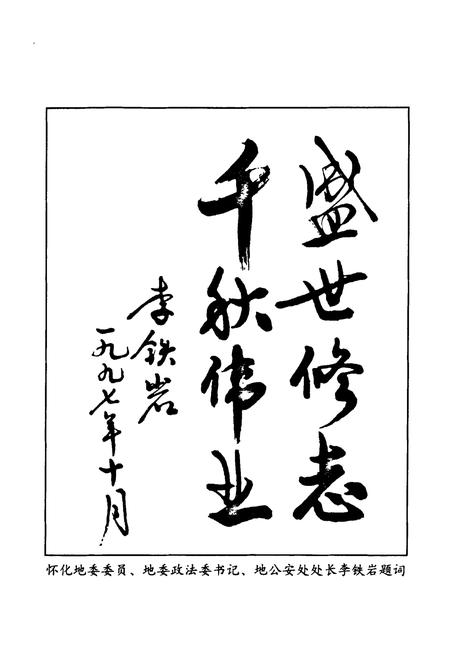 盛世修志
千秋伟业
李铁岩
一九九七年十月
怀化地委委员、地委政法委书记、地公安处处长李铁岩题词